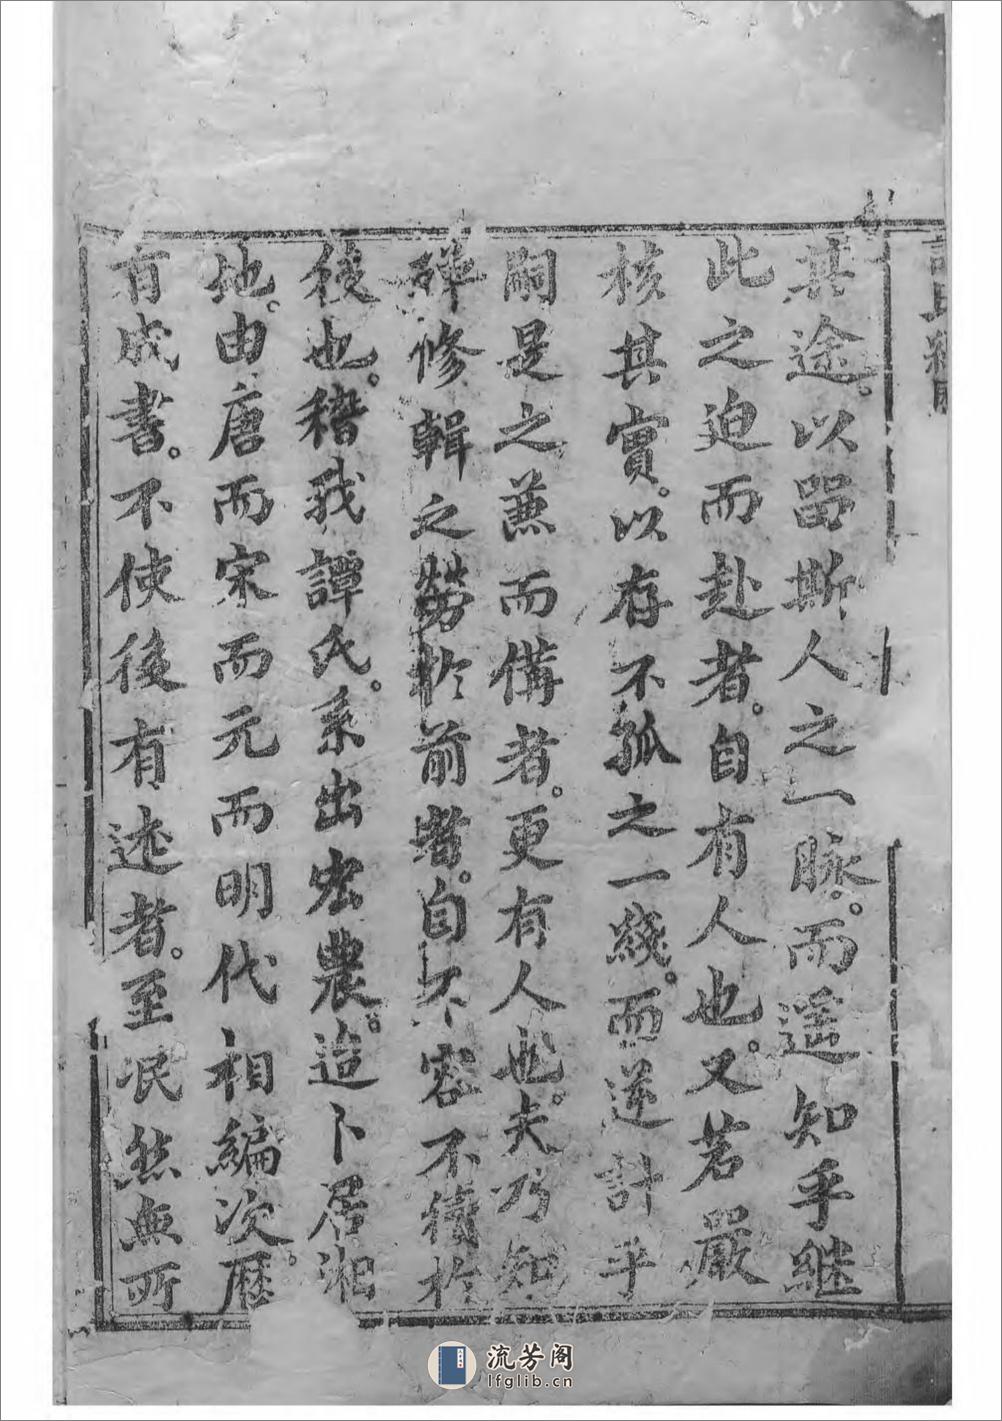 譚氏續修
其途。以留斯人之一脉。而遥知乎継
此之迫而赴者。自有人也。又若嚴
核其實。以存不孤之一綫。而逆計乎
嗣是之蒹而備者。更有人也。夫乃知
殫修輯之勞於前者。自不容不待於
後也。稽我譚氏。系出宏農。迨卜居湘
地。由唐而宋而元而明代相編次。歷
有成書。不使後有述者。至泯然無所
流芳阁
lfglib.cn